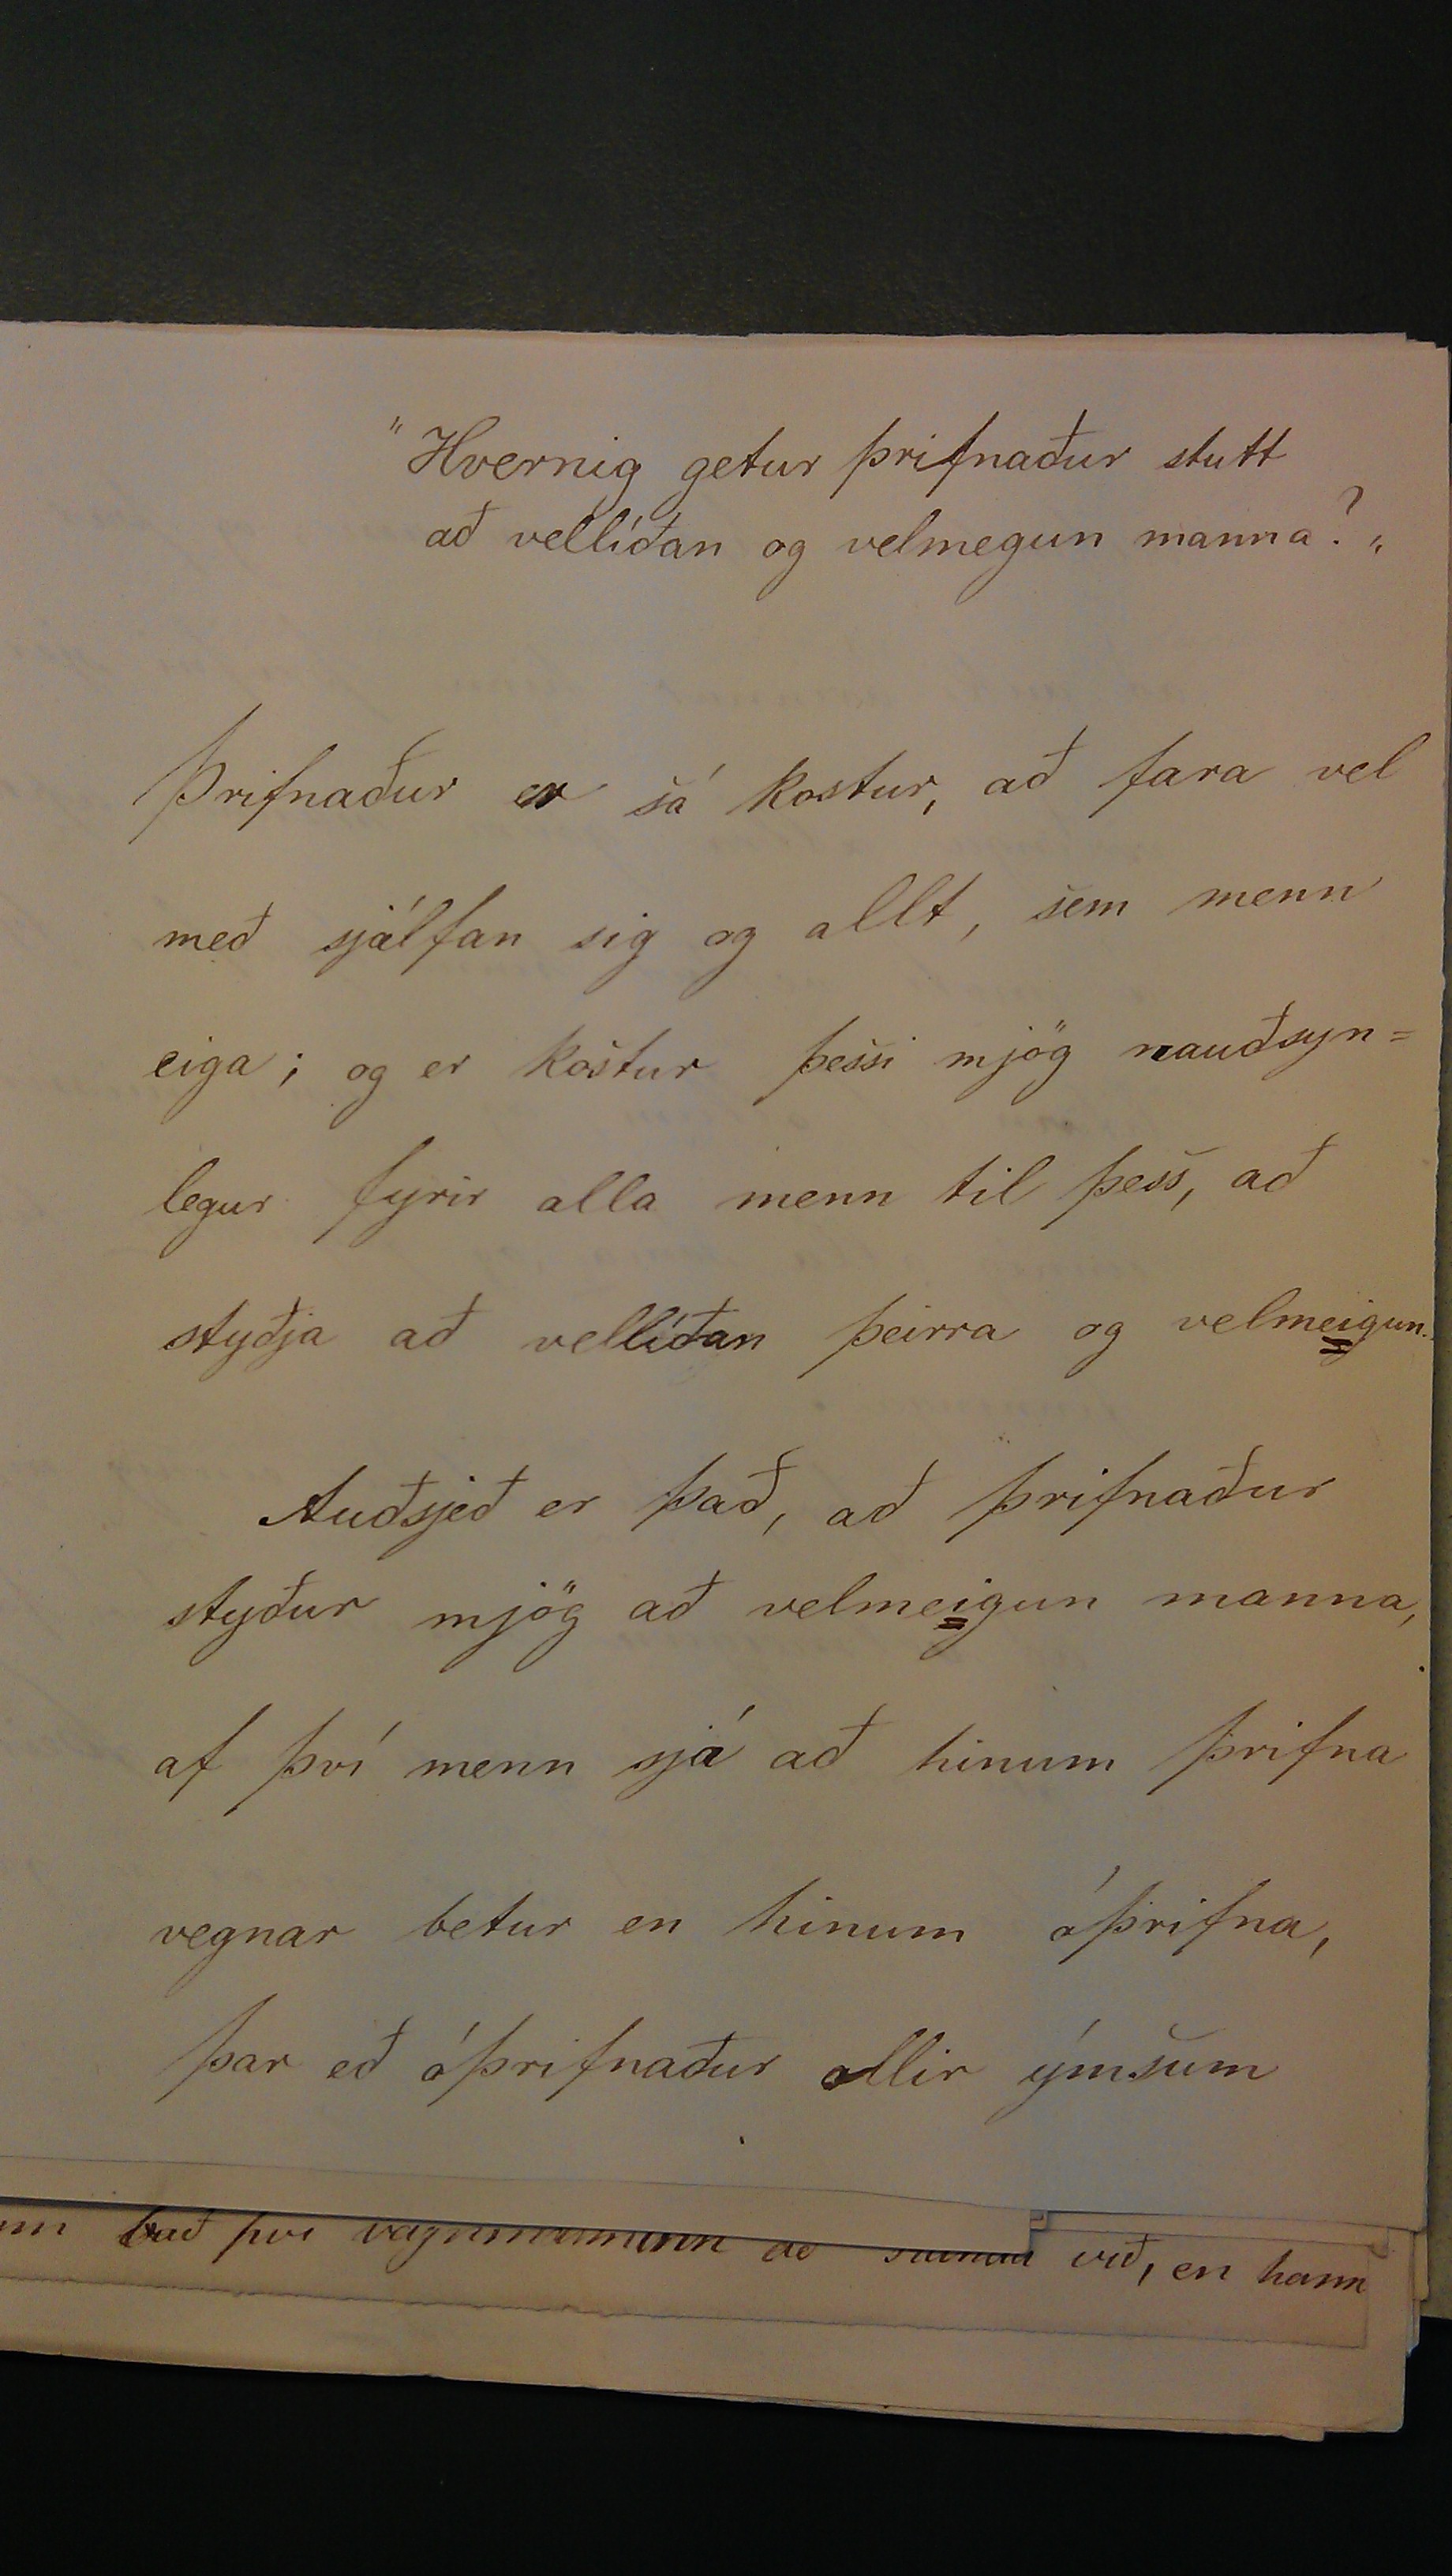 "Hvernig getur þrifnaður stutt
að vellíðan og velmegun manna?„
Þrifnaður er sá kostur, að fara vel
með sjálfan sig og allt, sem menn
eiga; og er kostur þessi mjög nauðsyn=
legur fyrir alla menn til þess, að
styðja að vellíðan þeirra og velmeigun.
Auðsjeð er það, að þrifnaður
styður mjög að velmeigun manna,
af því menn sjá að hinum þrifna
vegnar betur en hinum óþrifna,
þar eð óþrifnaður ollir ýmsum
bað því við, en hann